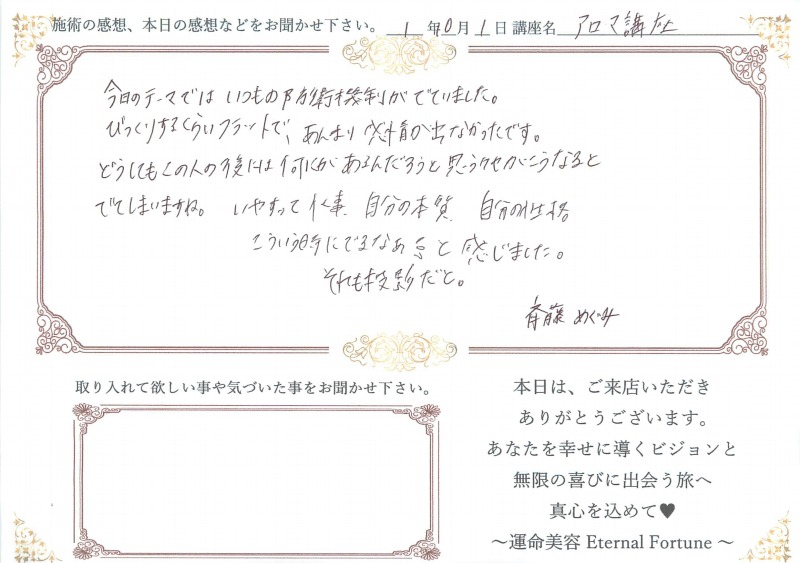 施術の感想、本日の感想などをお聞かせ下さい。 1年10月1日 講座名 アロマ講座
今日のテーマでは いつもの防衛機制がでていました。
びっくりするくらいフラットで、あんまり感情が出なかったです。
どうしてもこの人の後には何にかがあるんだろうと思うクセがこうなると
でてしまいますね。 いやすって仕事 自分の本質 自分の性格
こういう時にでるなぁと感じました。
それも投影だと。
斉藤 めぐみ
取り入れて欲しい事や気づいた事をお聞かせ下さい。
本日は、ご来店いただき
ありがとうございます。
あなたを幸せに導くビジョンと
無限の喜びに出会う旅へ
真心を込めて♥
～運命美容 Eternal Fortune～